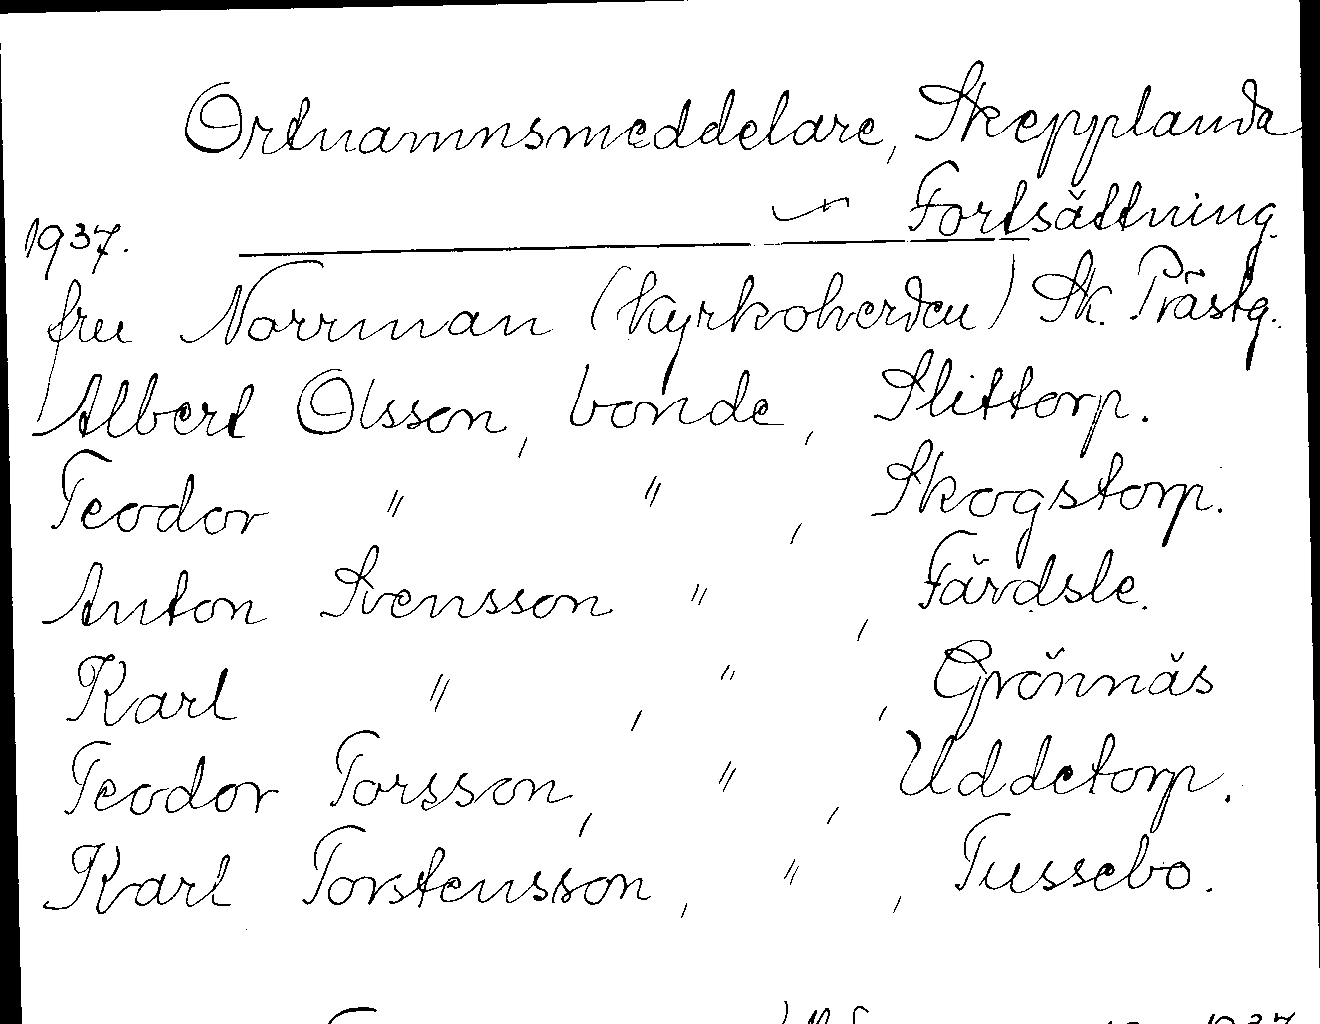 Ortnamnsmeddelare, Skepplanda
Fortsättning.
1937.
fru Norrman (kyrkoherden) Sk. Prästg.
Albert Olsson, bonde, Slittorp.
Teodor " " , Skogstorp.
Anton Svensson " , Färdsle.
Karl " , " , Grönnäs
Teodor Torsson, " , Uddetorp.
Karl Torstensson, " , Tussebo.
1937